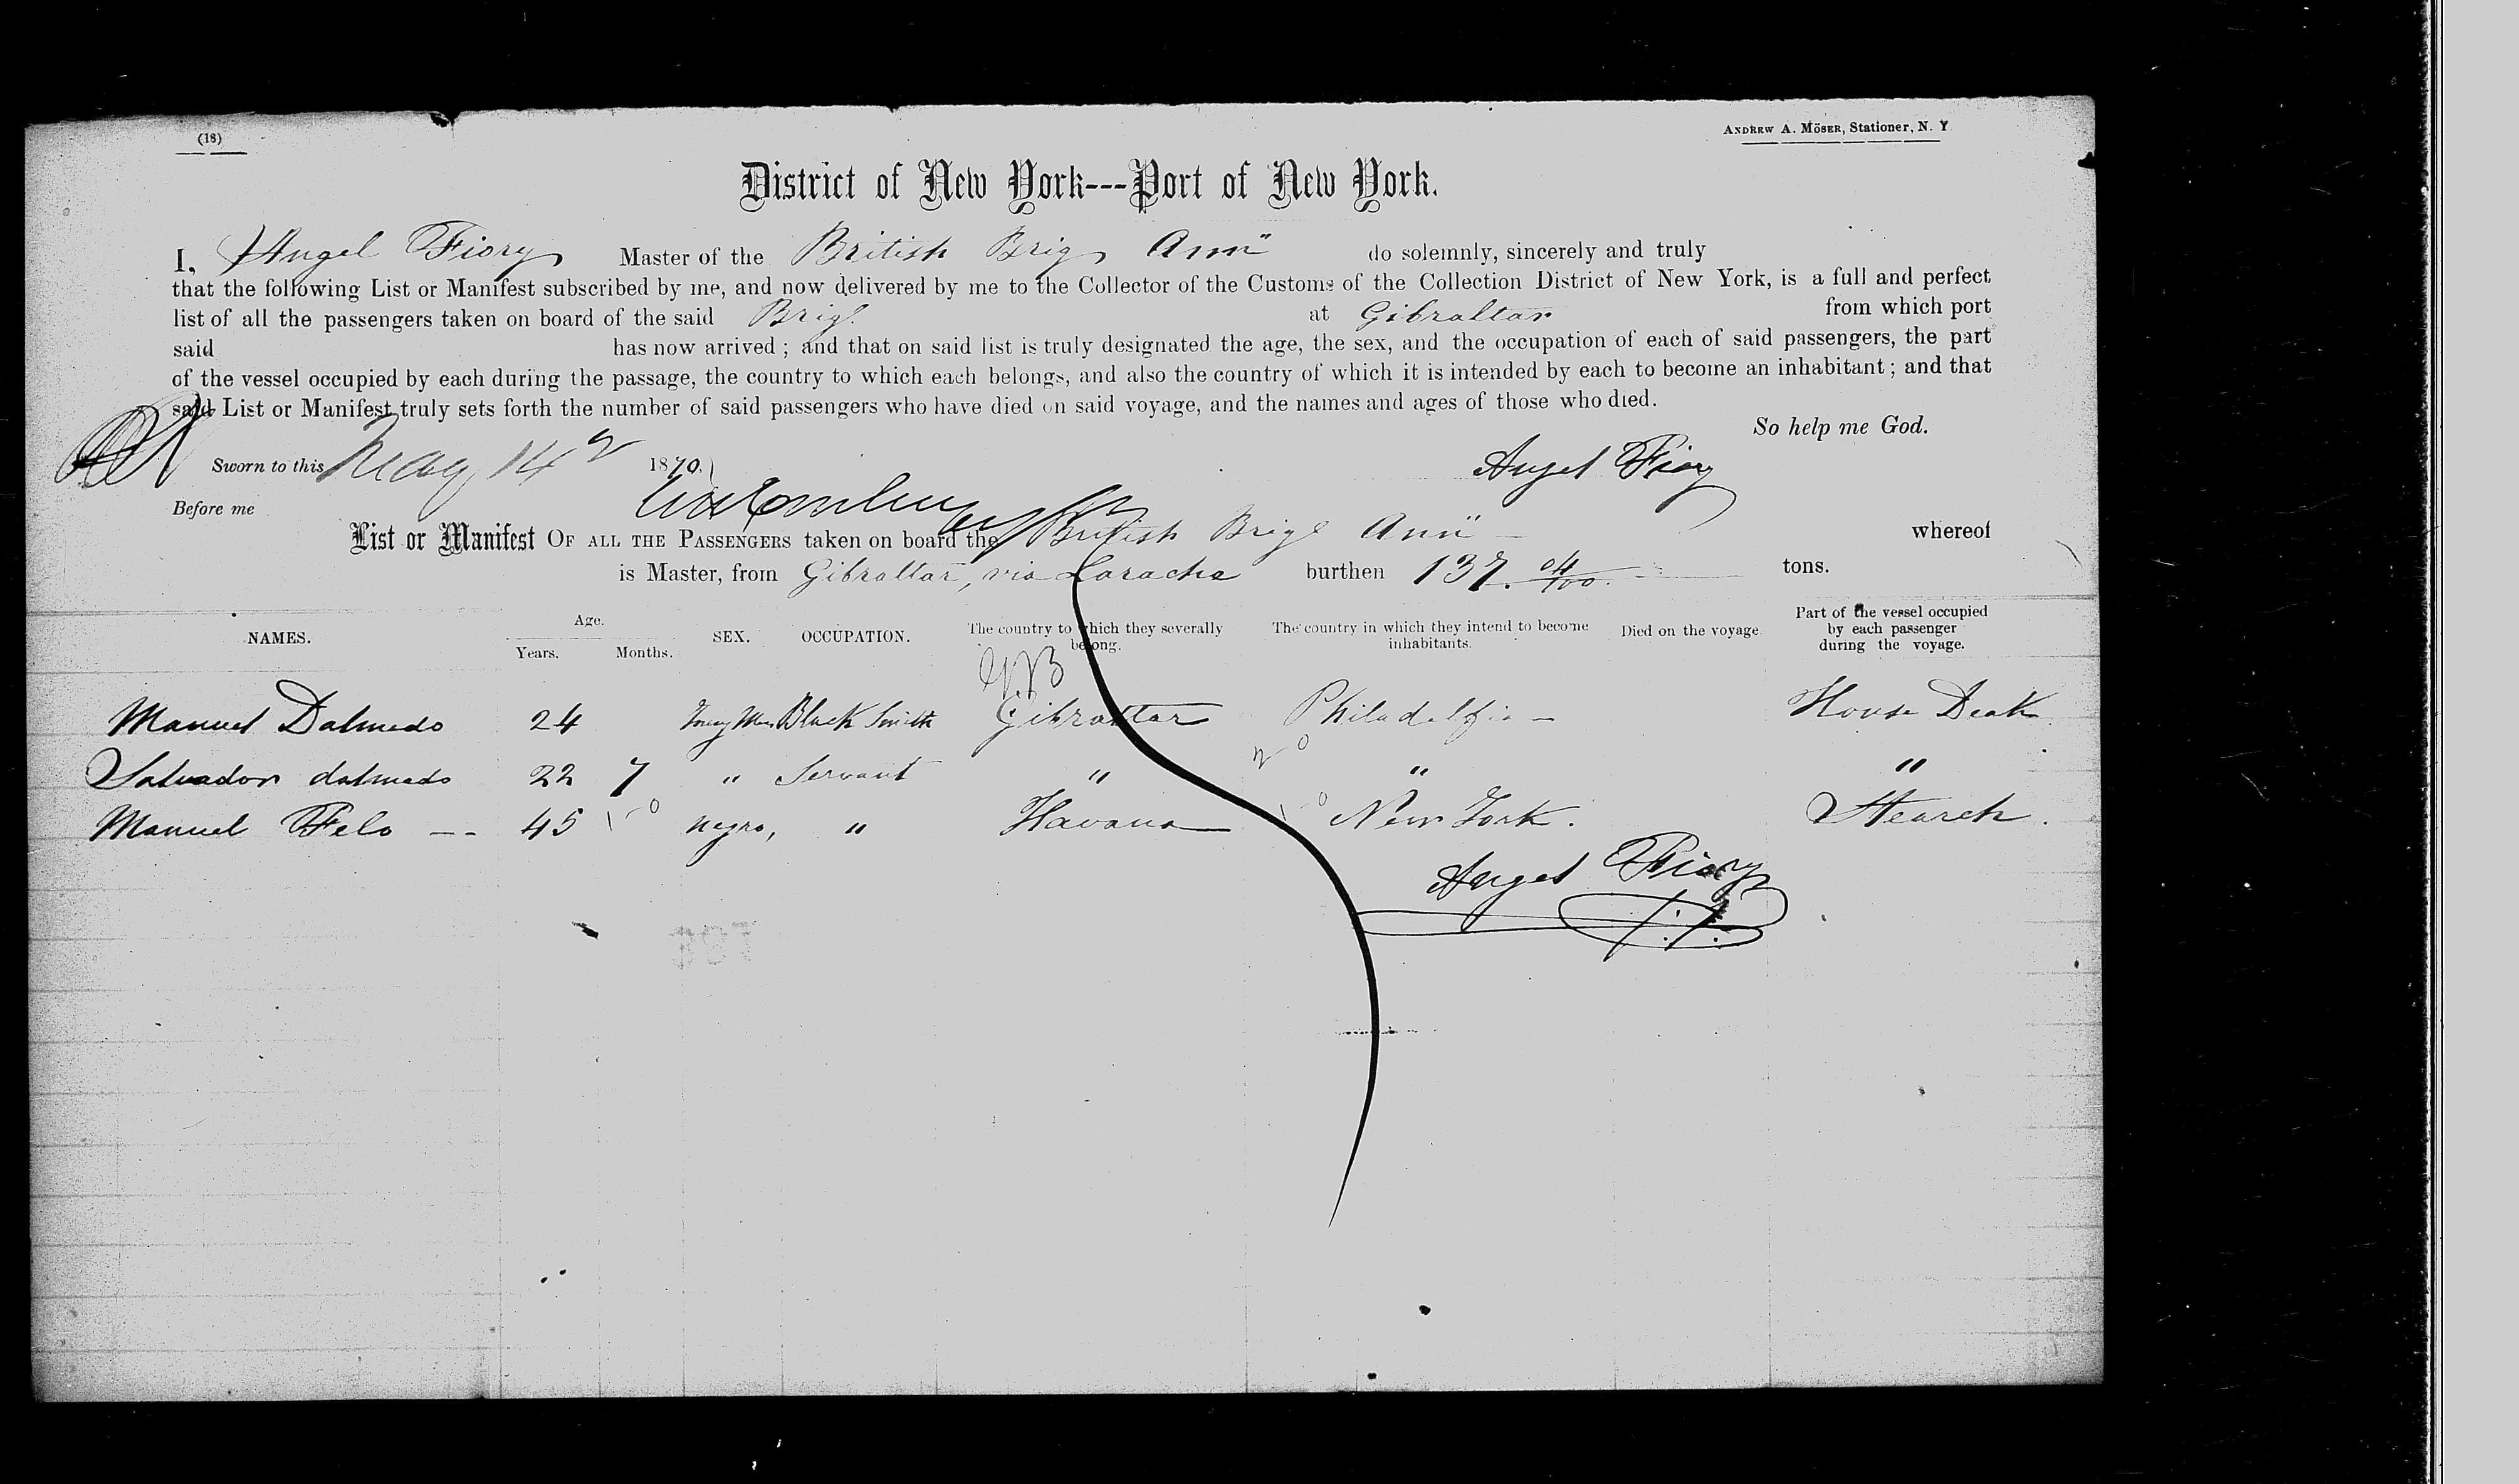 (18)
ANDREW A. MÖSER, Stationer, N. Y
District of New York---Port of New York.
I, Angel Fiory Master of the British Brig Ann" do solemnly, sincerely and truly
that the following List or Manifest subscribed by me, and now delivered by me to the Collector of the Customs of the Collection District of New York, is a full and perfect
list of all the passengers taken on board of the said Brig. at Gibraltar from which port
said has now arrived ; and that on said list is truly designated the age, the sex, and the occupation of each of said passengers, the part
of the vessel occupied by each during the passage, the country to which each belongs, and also the country of which it is intended by each to become an inhabitant ; and that
said List or Manifest truly sets forth the number of said passengers who have died on said voyage, and the names and ages of those who died.
So help me God.
Sworn to this May 14 1870. Angel Fiory
Before me
List or Manifest OF ALL THE PASSENGERS taken on board the British Brig Ann" whereof
is Master, from Gibraltar, via Larache burthen 137. 04/100. tons.
NAMES. Age. Years. Months. SEX. OCCUPATION. The country to which they severally belong. The country in which they intend to become inhabitants. Died on the voyage. Part of the vessel occupied by each passenger during the voyage.
G.B
Manuel Dalmedo 24 Young Man Black Smith Gibraltar Philadelfia — House Deak
Salvador dalmedo 22 7 " Servant " " "
Manuel Felo -- 45 negro, " Havana New York. Stearch.
Angel Fiory